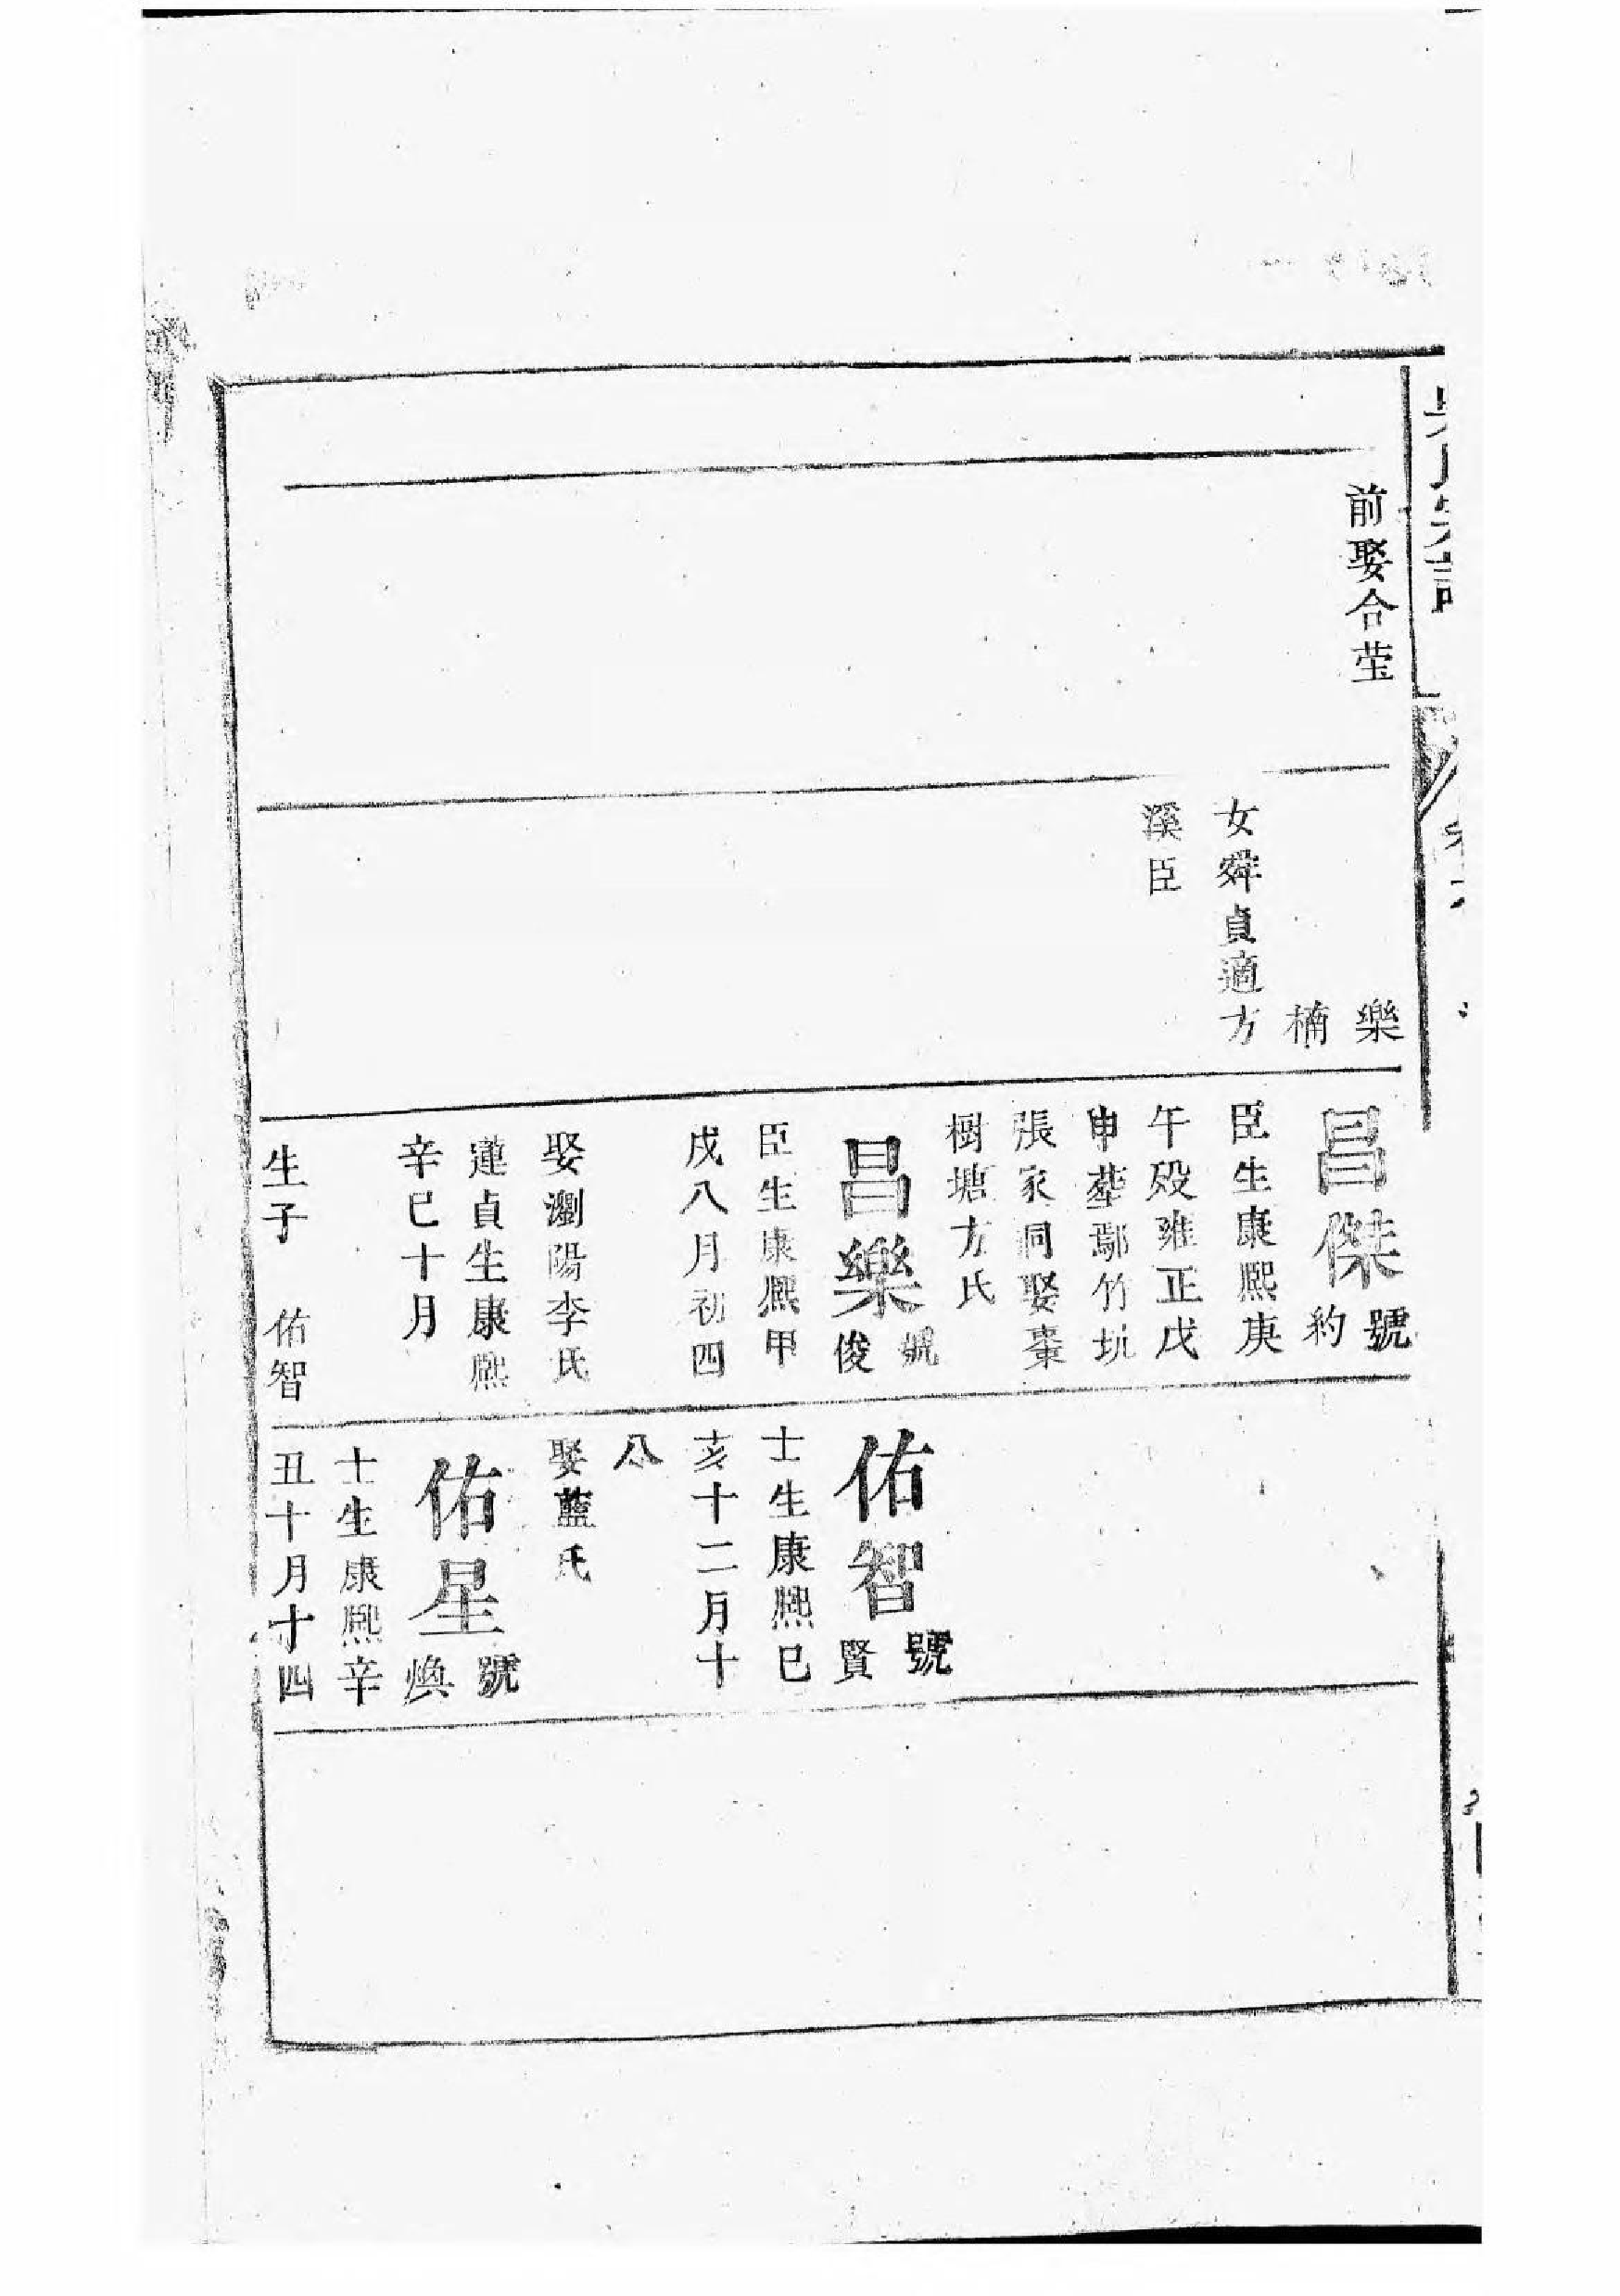 前娶合茔
樂
楠
女舜貞適方
溪臣
昌傑號約
臣生康熙庚
午殁雍正戊
申塟鄢竹坑
張家洞娶棗
樹塘方氏
昌樂號俊
臣生康熈甲
戌八月初四
娶瀏陽李氏
蓮貞生康熈
辛巳十月
生子 佑智
佑智號賢
士生康熈已
亥十二月十
八
娶藍氏
佑星號煥
士生康熈辛
丑十月十四